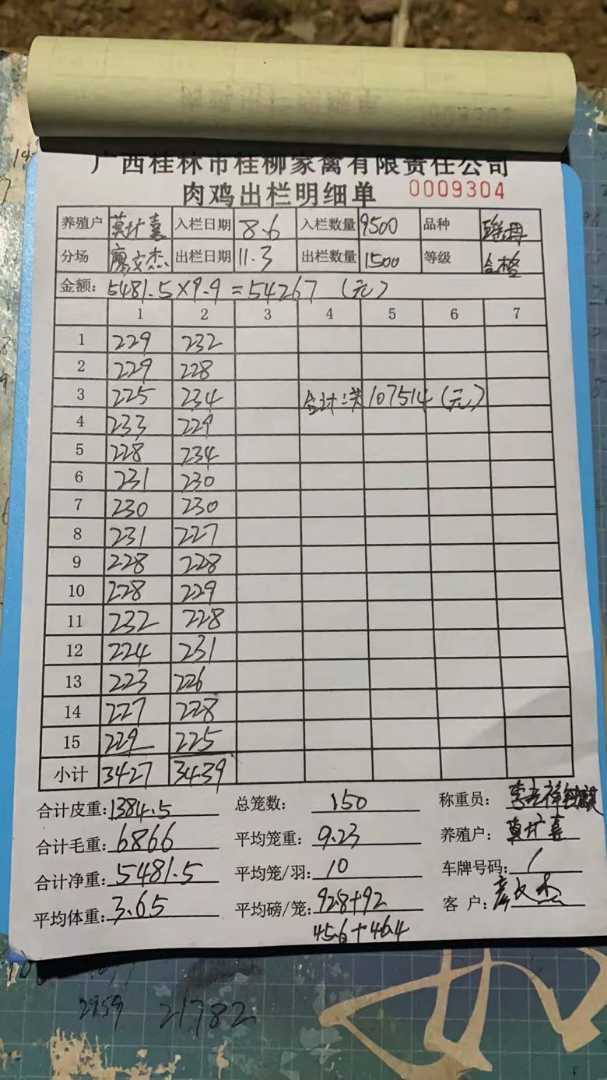 广西桂林市桂柳家禽有限责任公司
肉鸡出栏明细单 0009304
养殖户 莫计喜 入栏日期 8.6 入栏数量 9500 品种
分场 廖文杰 出栏日期 11.3 出栏数量 1500 等级 合格
金额: 5481.5×9.9=54267 (元)
1 2 3 4 5 6 7
1 229 232
2 229 228
3 225 234 合计:共107514(元)
4 233 229
5 228 234
6 231 230
7 230 230
8 231 227
9 228 228
10 228 229
11 232 228
12 224 231
13 223 226
14 227 228
15 229 225
小计 3427 3439
合计皮重: 1384.5 总笼数: 150 称重员:
合计毛重: 6866 平均笼重: 9.23 养殖户: 莫计喜
合计净重: 5481.5 平均笼/羽: 10 车牌号码: /
平均体重: 3.65 平均磅/笼: 92.8+92 客 户: 廖文杰
45.6+46.4
2959 21782